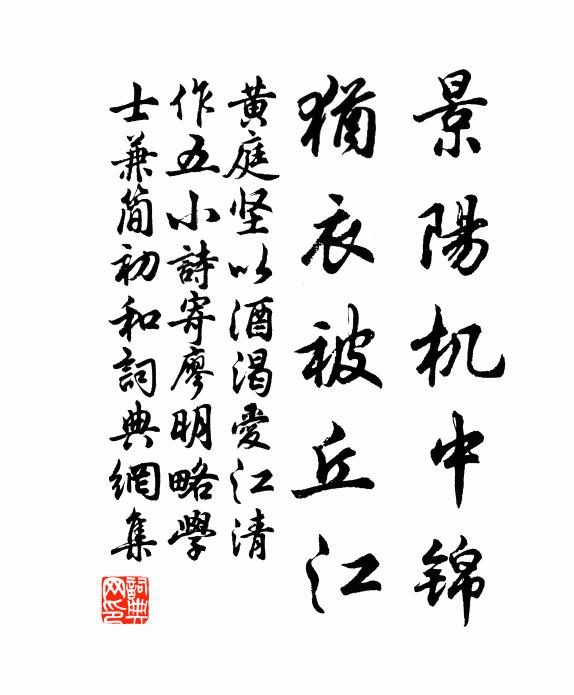 景陽机中锦
猶衣被丘江
黄庭坚以酒渴愛江清
作五小詩寄廖明略學
士兼簡初和詞典網集
詞典网印